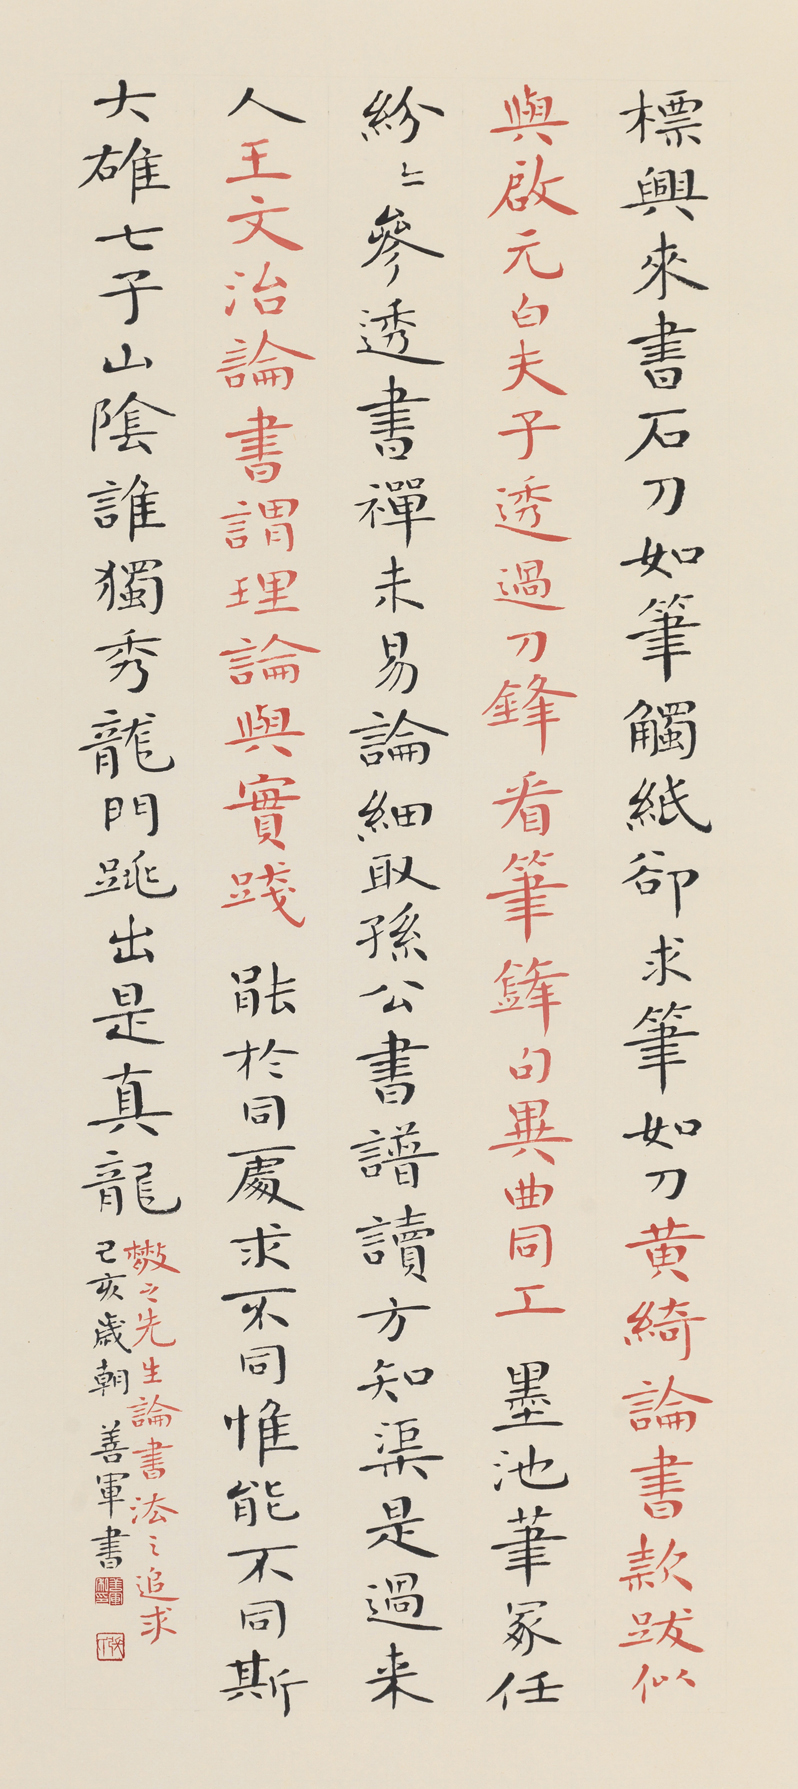 標興來書石刀如筆觸紙卻求筆如刀黄綺論書款跋似
與啟元白夫子透過刀鋒看筆鋒句異曲同工 墨池筆冢任
紛〻參透書禪未易論細取孫公書譜讀方知渠是過来
人王文治論書謂理論與實踐 能於同處求不同惟能不同斯
大雄七子山陰誰獨秀龍門跳出是真龍
散之先生論書法之追求
己亥歲朝 善軍書